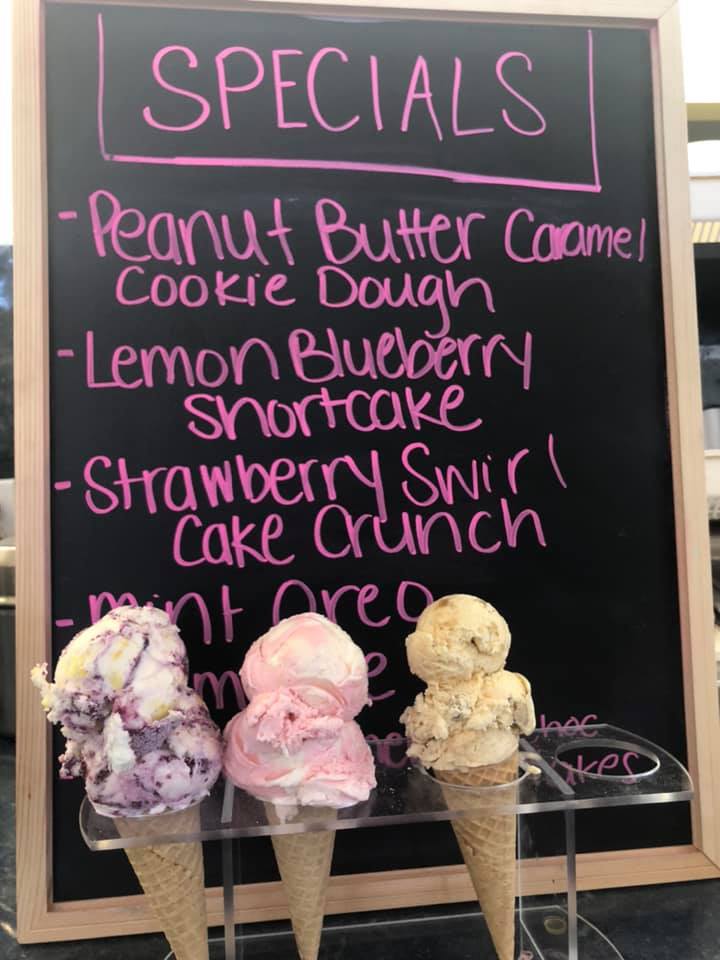 SPECIALS
- Peanut Butter Caramel
Cookie Dough
- Lemon Blueberry
Shortcake
- Strawberry Swirl
Cake Crunch
- Mint Oreo